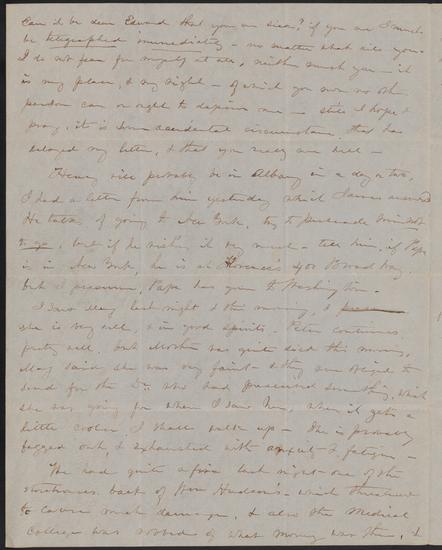 Can it be dear Edward that you are sick? if you are I must
be telegraphed immediately - no matter what ails you -
I do not fear for myself at all, neither must you - it
is my place, & my right - of which you nor no other
person can or right to deprive me - still I hope &
pray, it is some accidental circumstance, that has
delayed my letter, & that you really are well -
Henry will probably be in Albany in a day or two,
I had a letter from him yesterday which I answered
He talks of going to New York, try to persuade him not
to go, but if he wishes it very much - tell him, if Papa
is in New York, he is at Florence's 400 Broadway.
but I presume, Papa has gone to Washington -
I saw Mary last night & this morning, &
she is very well, & in good spirits - Peter continues
pretty well. but Mother was quite sick this morning,
Mary said she was very faint - & they were obliged to
send for the Dr. who had prescribed something, what
she was going for when I saw her, when it gets a
little cooler I shall walk up - She is probably
fagged out, & exhausted with anxiety & fatigue -
We had quite a fire last night - one of the
storehouses back of Hudson's - which threatened
to cause much damage, & also the Medical
College was robbed of what money was there, &